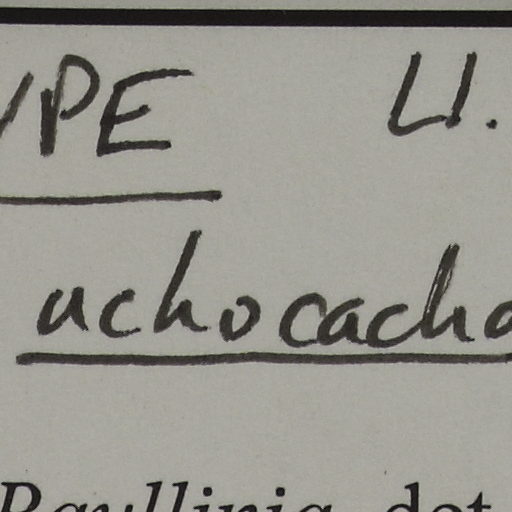 YPE U.
uchocacha
Paullinia det.